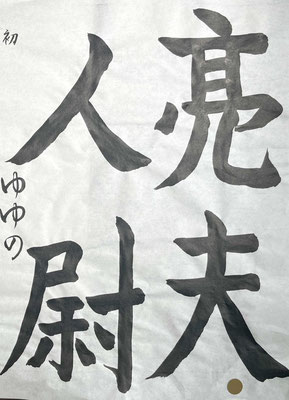 亮夫
人尉
初 ゆゆの